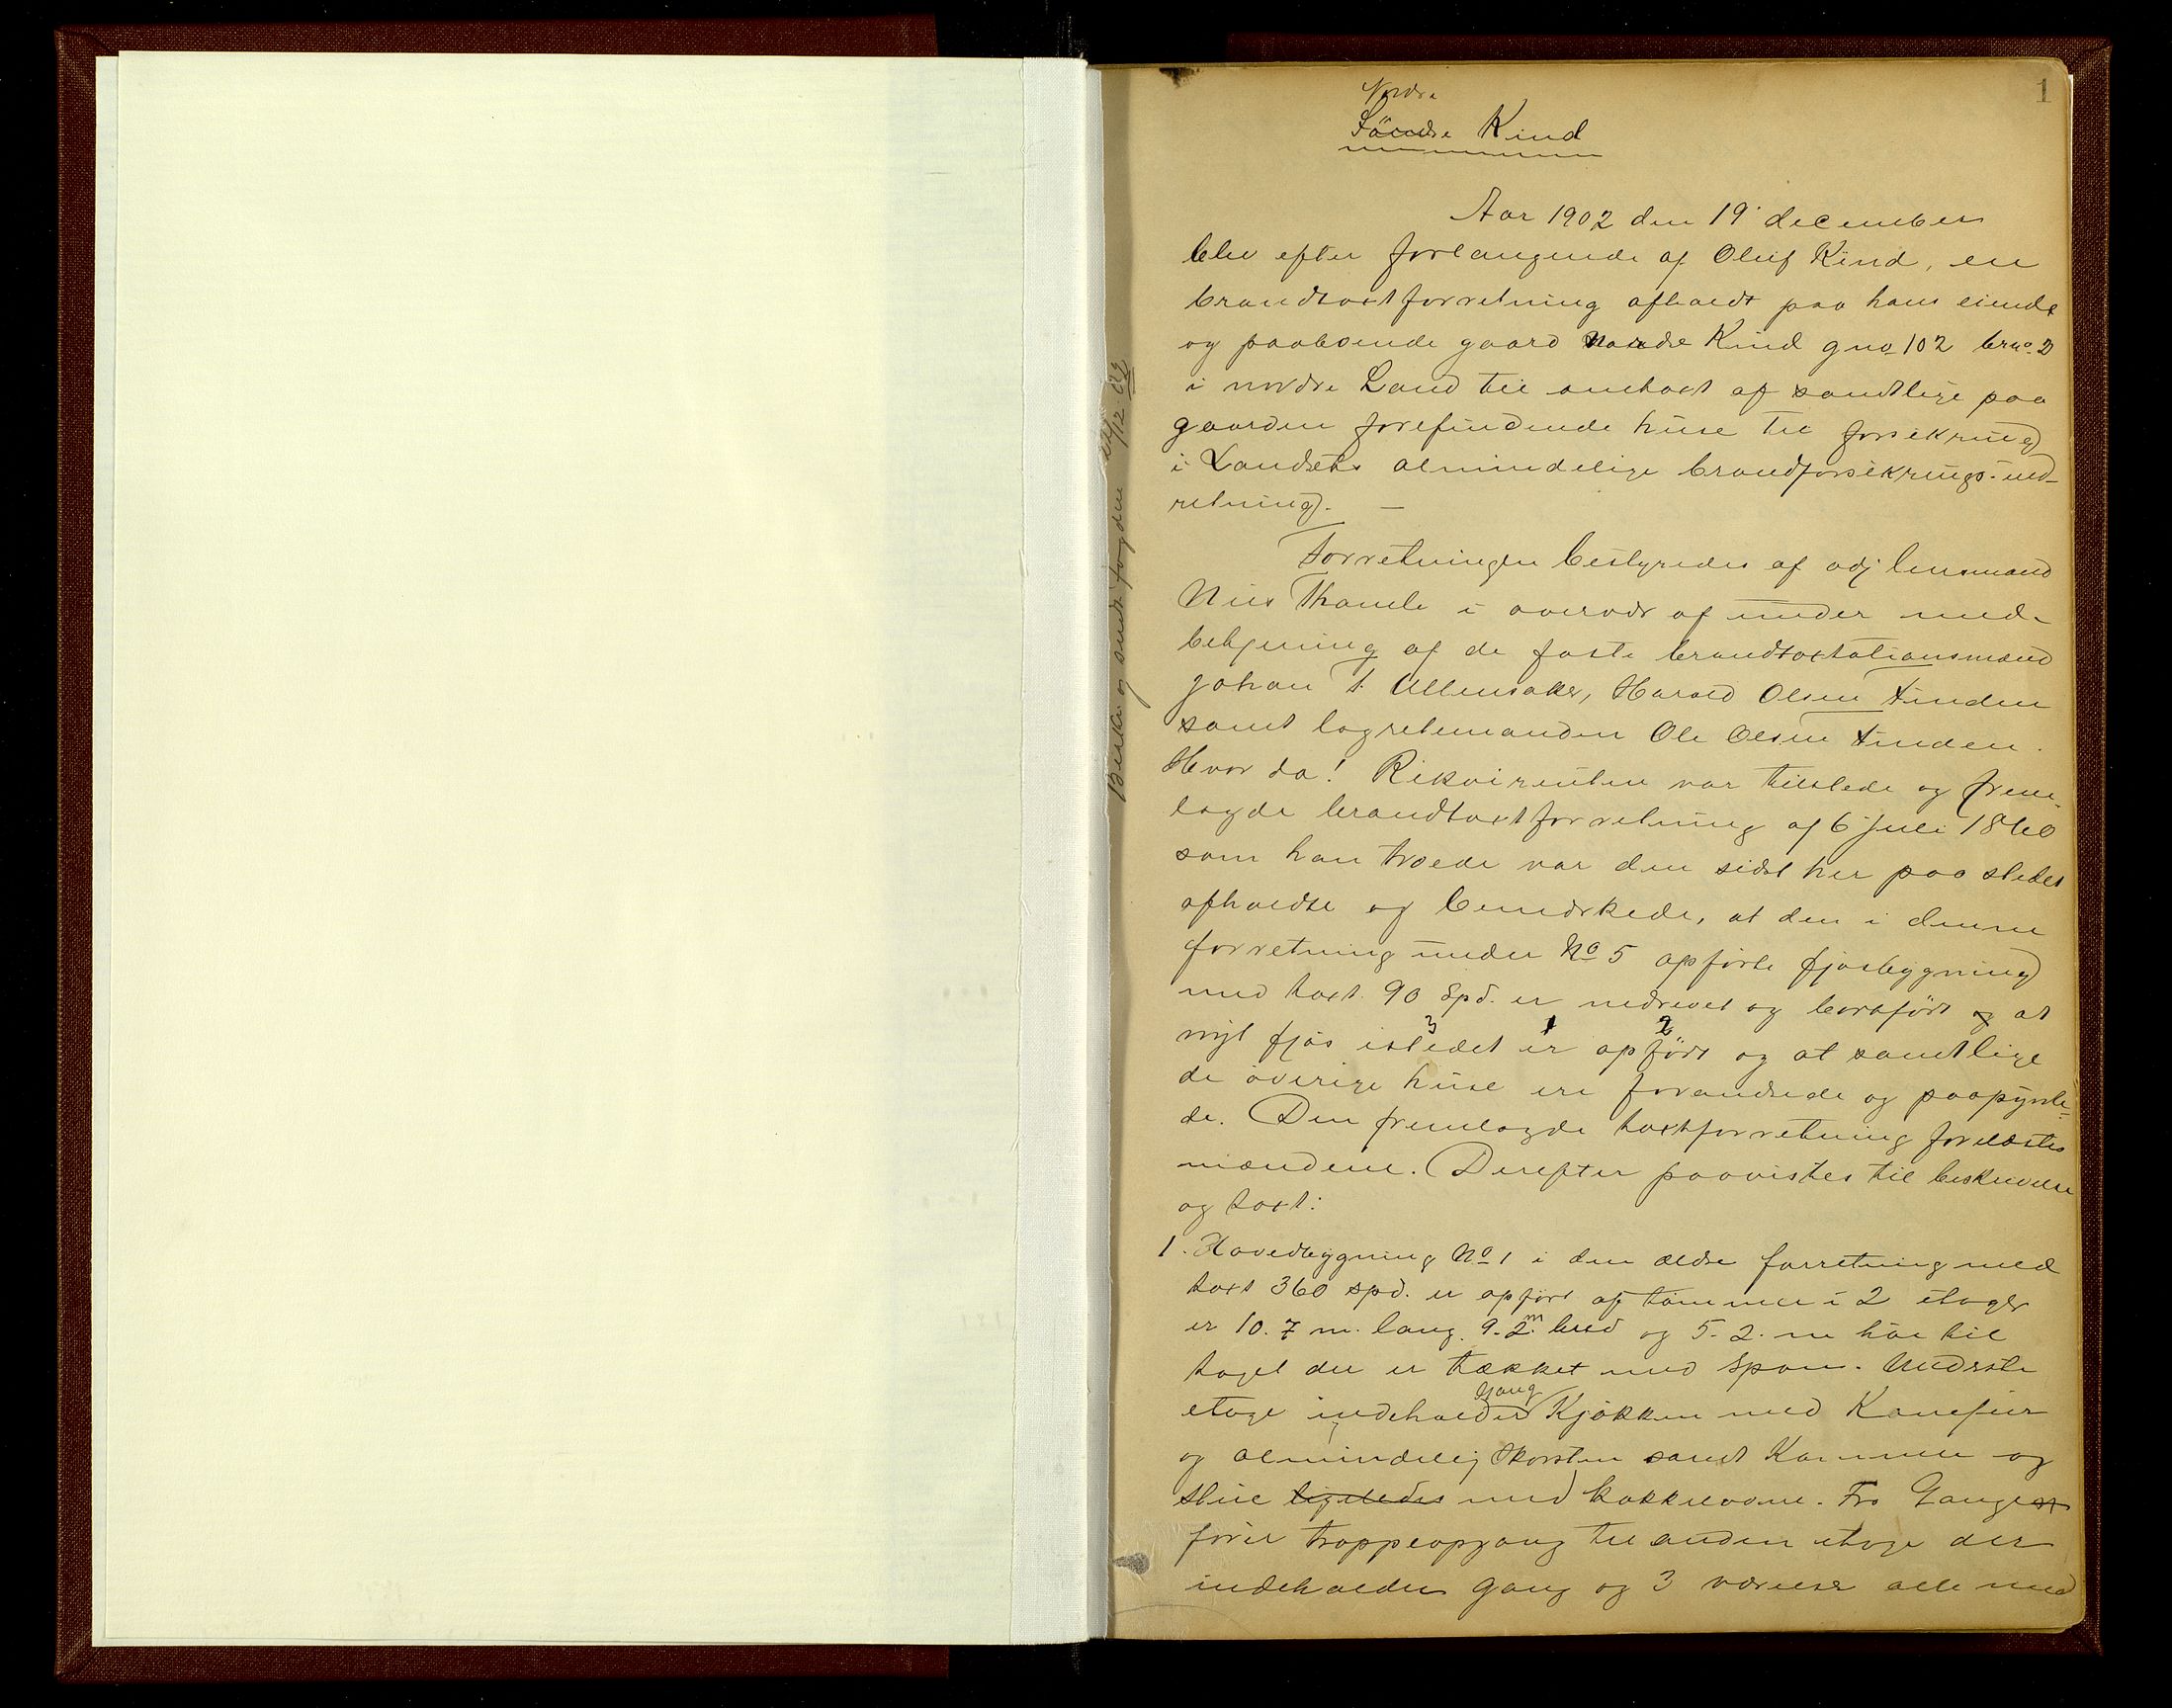 1
Nordre
Söndre Kind
Aar 1902 den 19 december
blev efter forlangende af Oluf Kind, en
brandtaxtforretning afholdt paa hans eiende
og paaboende gaard Nordre Kind gno 102 brno. 2
i nordre Land til omtaxt af samtlige paa
gaarden forefindende huse til forsikring
i Landets almindelige brandforsikrings-ind-
retning. —
Forretningen bestyredes af adj lensmand
Nils Thomle i overvær af under med-
betjening af de faste brandtaxtationsmænd
Johan T. Ullensaker, Harald Olsen Finden
samt lagretemanden Ole Olsen Finden.
Hvor da! Rekvirenten var tilstede og frem-
lagde brandtaxtforretning af 6 juli 1860
som han troede var den sidst her paa stedet
afholdte og bemærkede, at den i denne
forretning under No 5 opførte fjøsbygning
med taxt 90 Spd. er nedrevet og bortført og at
3 1 2
nyt fjøs istedet er opført og at samtlige
de øverige huse ere forandrede og paapyntе-
de. Den fremlagde taxtforretning forelæstes
mændene. Derefter paavistes til beskrivelse
og taxt:
1. Hovedbygning No 1 i den ældre forretning med
taxt 360 spd. er opført af tømmer i 2 etager
er 10.7 m. lang. 9.2 m. bred og 5.2. m høi til
taget der er tækket med spon. Nederste
etage indeholder Gang Kjøkken med Komfur
og almindelig Skorsten samt Kammer og
stue ligeledes med kakkelovne. Fra Gangen
fører trappeopgang til anden etage der
indeholder gang og 3 værelser alle med
Beskr. og sendt fogden 22/12 02